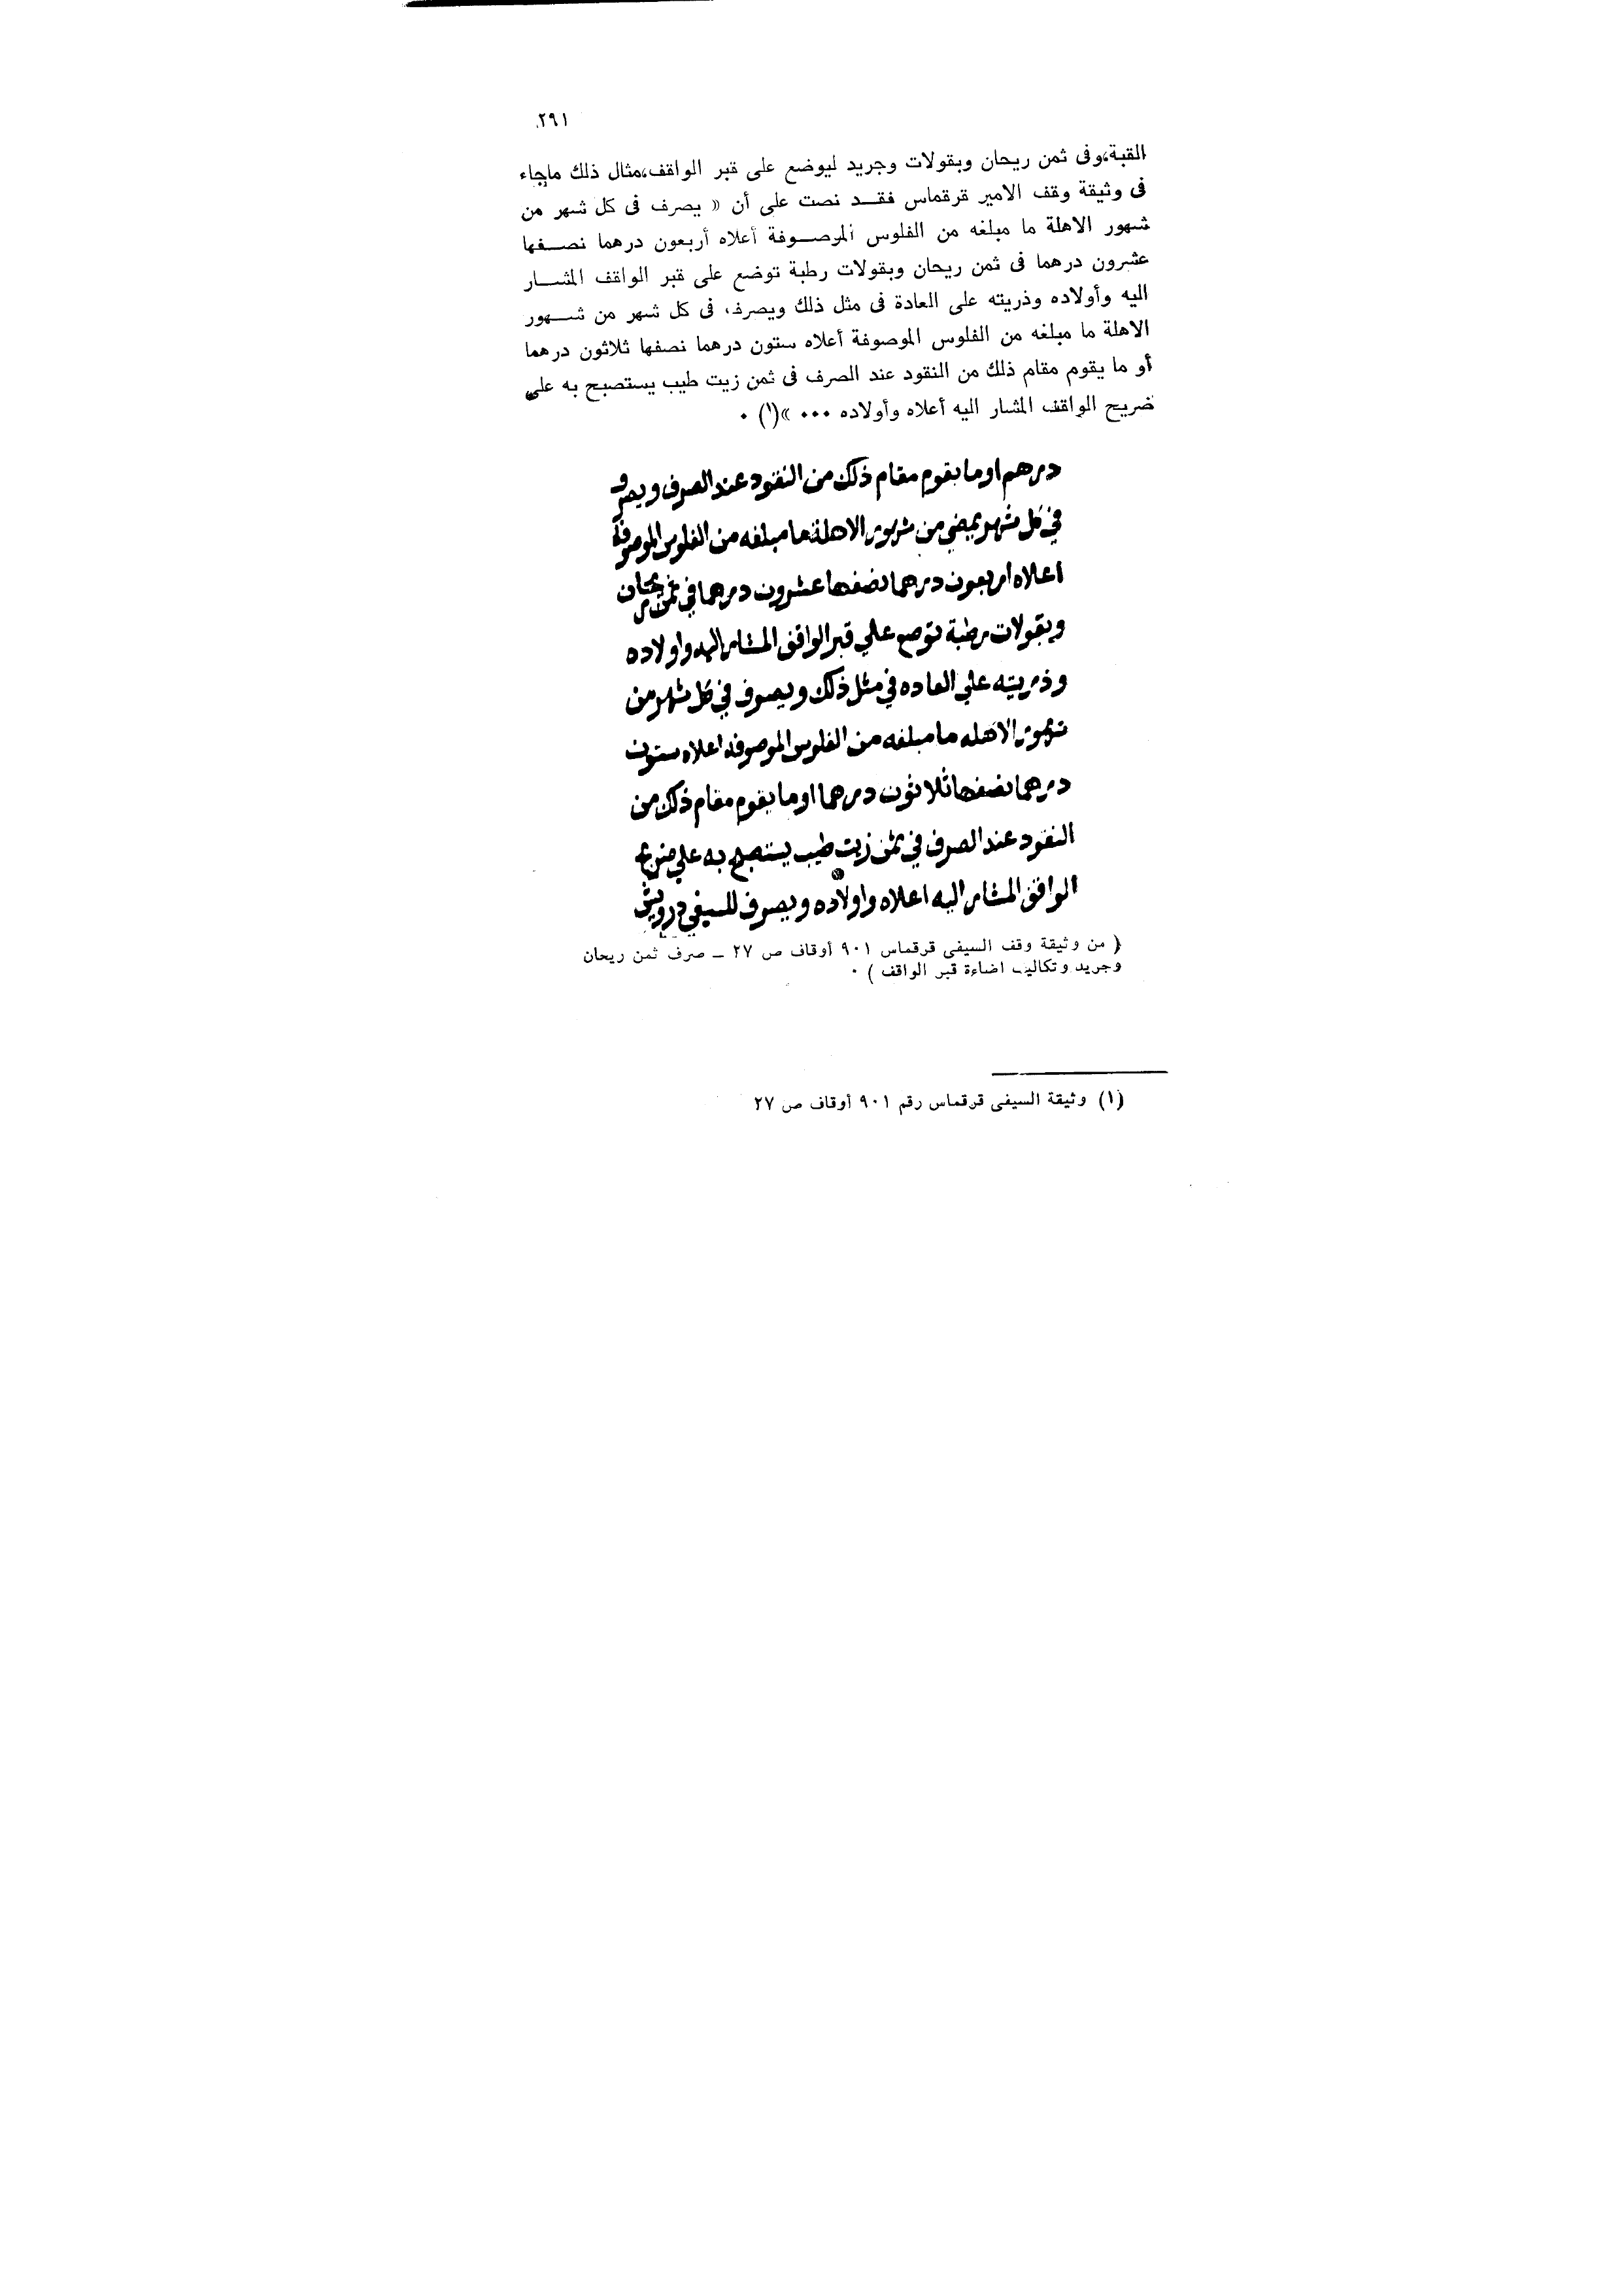 ٢٩١
القبة،وفى ثمن ريحان وبقولات وجريد ليوضع على قبر الواقف،مثال ذلك ماجاء
فى وثيقة وقف الامير قرقماس فقـــد نصت على أن « يصرف فى كل شهر من
شهور الاهلة ما مبلغه من الفلوس الموصـــوفة أعلاه أربعون درهما نصـــفها
عشرون درهما فى ثمن ريحان وبقولات رطبة توضع على قبر الواقف المشـــار
اليه وأولاده وذريته على العادة فى مثل ذلك ويصرف، فى كل شهر من شـــهور
الاهلة ما مبلغه من الفلوس الموصوفة أعلاه ستون درهما نصفها ثلاثون درهما
أو ما يقوم مقام ذلك من النقود عند الصرف فى ثمن زيت طيب يستصبح به على
ضريح الواقف المشار اليه أعلاه وأولاده ٠٠٠ »(١) ٠
درهم اوما يقوم مقام ذلك من النقود عند الصرف ويصرف
في كل شهر يمضي من شهور الاهلة ما مبلغه من الفلوس الموصوفة
اعلاه اربعون درهما نصفها عشرون درهما في ثمن ريحان
وبقولات رطبة توضع علي قبر الواقف المشار اليه واولاده
وذريته علي العاده في مثل ذلك ويصرف في كل شهر من
شهور الاهله ما مبلغه من الفلوس الموصوفه اعلاه ستون
درهما نصفها ثلاثون درهما اوما يقوم مقام ذلك من
النقود عند الصرف في ثمن زيت طيب يستصبح به علي ضريح
الواقف المشار اليه اعلاه واولاده ويصرف للسيفي درويش
( من وثيقة وقف السيفى قرقماس ٩٠١ أوقاف ص ٢٧ ــ صرف ثمن ريحان
وجريد وتكاليف اضاءة قبر الواقف ) ٠
(١) وثيقة السيفى قرقماس رقم ٩٠١ أوقاف ص ٢٧